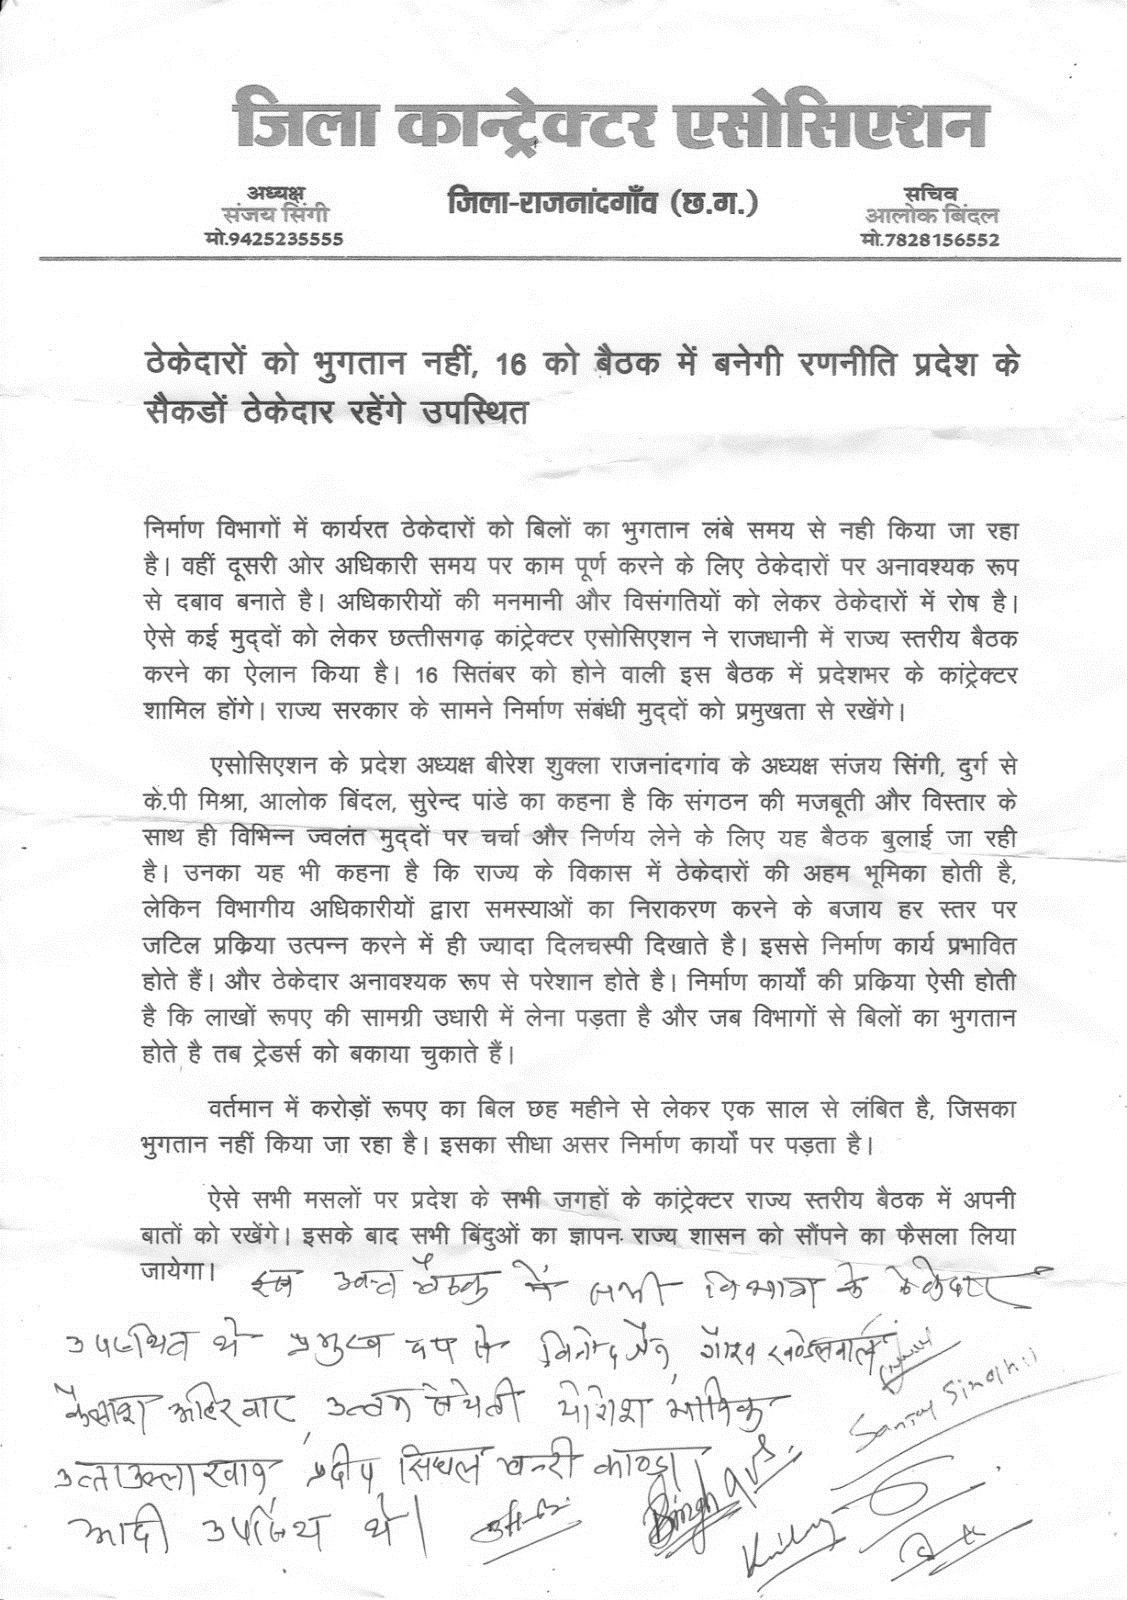 जिला कान्ट्रेक्टर एसोसिएशन
अध्यक्ष
संजय सिंगी
मो.9425235555
जिला-राजनांदगाँव (छ.ग.)
सचिव
आलोक बिंदल
मो.7828156552
ठेकेदारों को भुगतान नहीं, 16 को बैठक में बनेगी रणनीति प्रदेश के
सैकडों ठेकेदार रहेंगे उपस्थित
निर्माण विभागों में कार्यरत ठेकेदारों को बिलों का भुगतान लंबे समय से नही किया जा रहा
है। वहीं दूसरी ओर अधिकारी समय पर काम पूर्ण करने के लिए ठेकेदारों पर अनावश्यक रूप
से दबाव बनाते है। अधिकारीयों की मनमानी और विसंगतियों को लेकर ठेकेदारों में रोष है।
ऐसे कई मुद्दों को लेकर छत्तीसगढ़ कांट्रेक्टर एसोसिएशन ने राजधानी में राज्य स्तरीय बैठक
करने का ऐलान किया है। 16 सितंबर को होने वाली इस बैठक में प्रदेशभर के कांट्रेक्टर
शामिल होंगे। राज्य सरकार के सामने निर्माण संबंधी मुद्दों को प्रमुखता से रखेंगे।
एसोसिएशन के प्रदेश अध्यक्ष बीरेश शुक्ला राजनांदगांव के अध्यक्ष संजय सिंगी, दुर्ग से
के.पी मिश्रा, आलोक बिंदल, सुरेन्द पांडे का कहना है कि संगठन की मजबूती और विस्तार के
साथ ही विभिन्न ज्वलंत मुद्दों पर चर्चा और निर्णय लेने के लिए यह बैठक बुलाई जा रही
है। उनका यह भी कहना है कि राज्य के विकास में ठेकेदारों की अहम भूमिका होती है,
लेकिन विभागीय अधिकारीयों द्वारा समस्याओं का निराकरण करने के बजाय हर स्तर पर
जटिल प्रकिया उत्पन्न करने में ही ज्यादा दिलचस्पी दिखाते है। इससे निर्माण कार्य प्रभावित
होते हैं। और ठेकेदार अनावश्यक रूप से परेशान होते है। निर्माण कार्यों की प्रकिया ऐसी होती
है कि लाखों रूपए की सामग्री उधारी में लेना पड़ता है और जब विभागों से बिलों का भुगतान
होते है तब ट्रेडर्स को बकाया चुकाते हैं।
वर्तमान में करोड़ों रूपए का बिल छह महीने से लेकर एक साल से लंबित है, जिसका
भुगतान नहीं किया जा रहा है। इसका सीधा असर निर्माण कार्यों पर पड़ता है।
ऐसे सभी मसलों पर प्रदेश के सभी जगहों के कांट्रेक्टर राज्य स्तरीय बैठक में अपनी
बातों को रखेंगे। इसके बाद सभी बिंदुओं का ज्ञापन राज्य शासन को सौंपने का फैसला लिया
जायेगा।
इस उक्त बैठक में सभी विभाग के ठेकेदार
उपस्थित थे प्रमुख रूप से विनोद जैन, गौरव खण्डेलवाल
कैलाश अहिरवार, उत्तम योगेश
प्रदीप सिंघल
आदी थे।
Sanjay Singhi